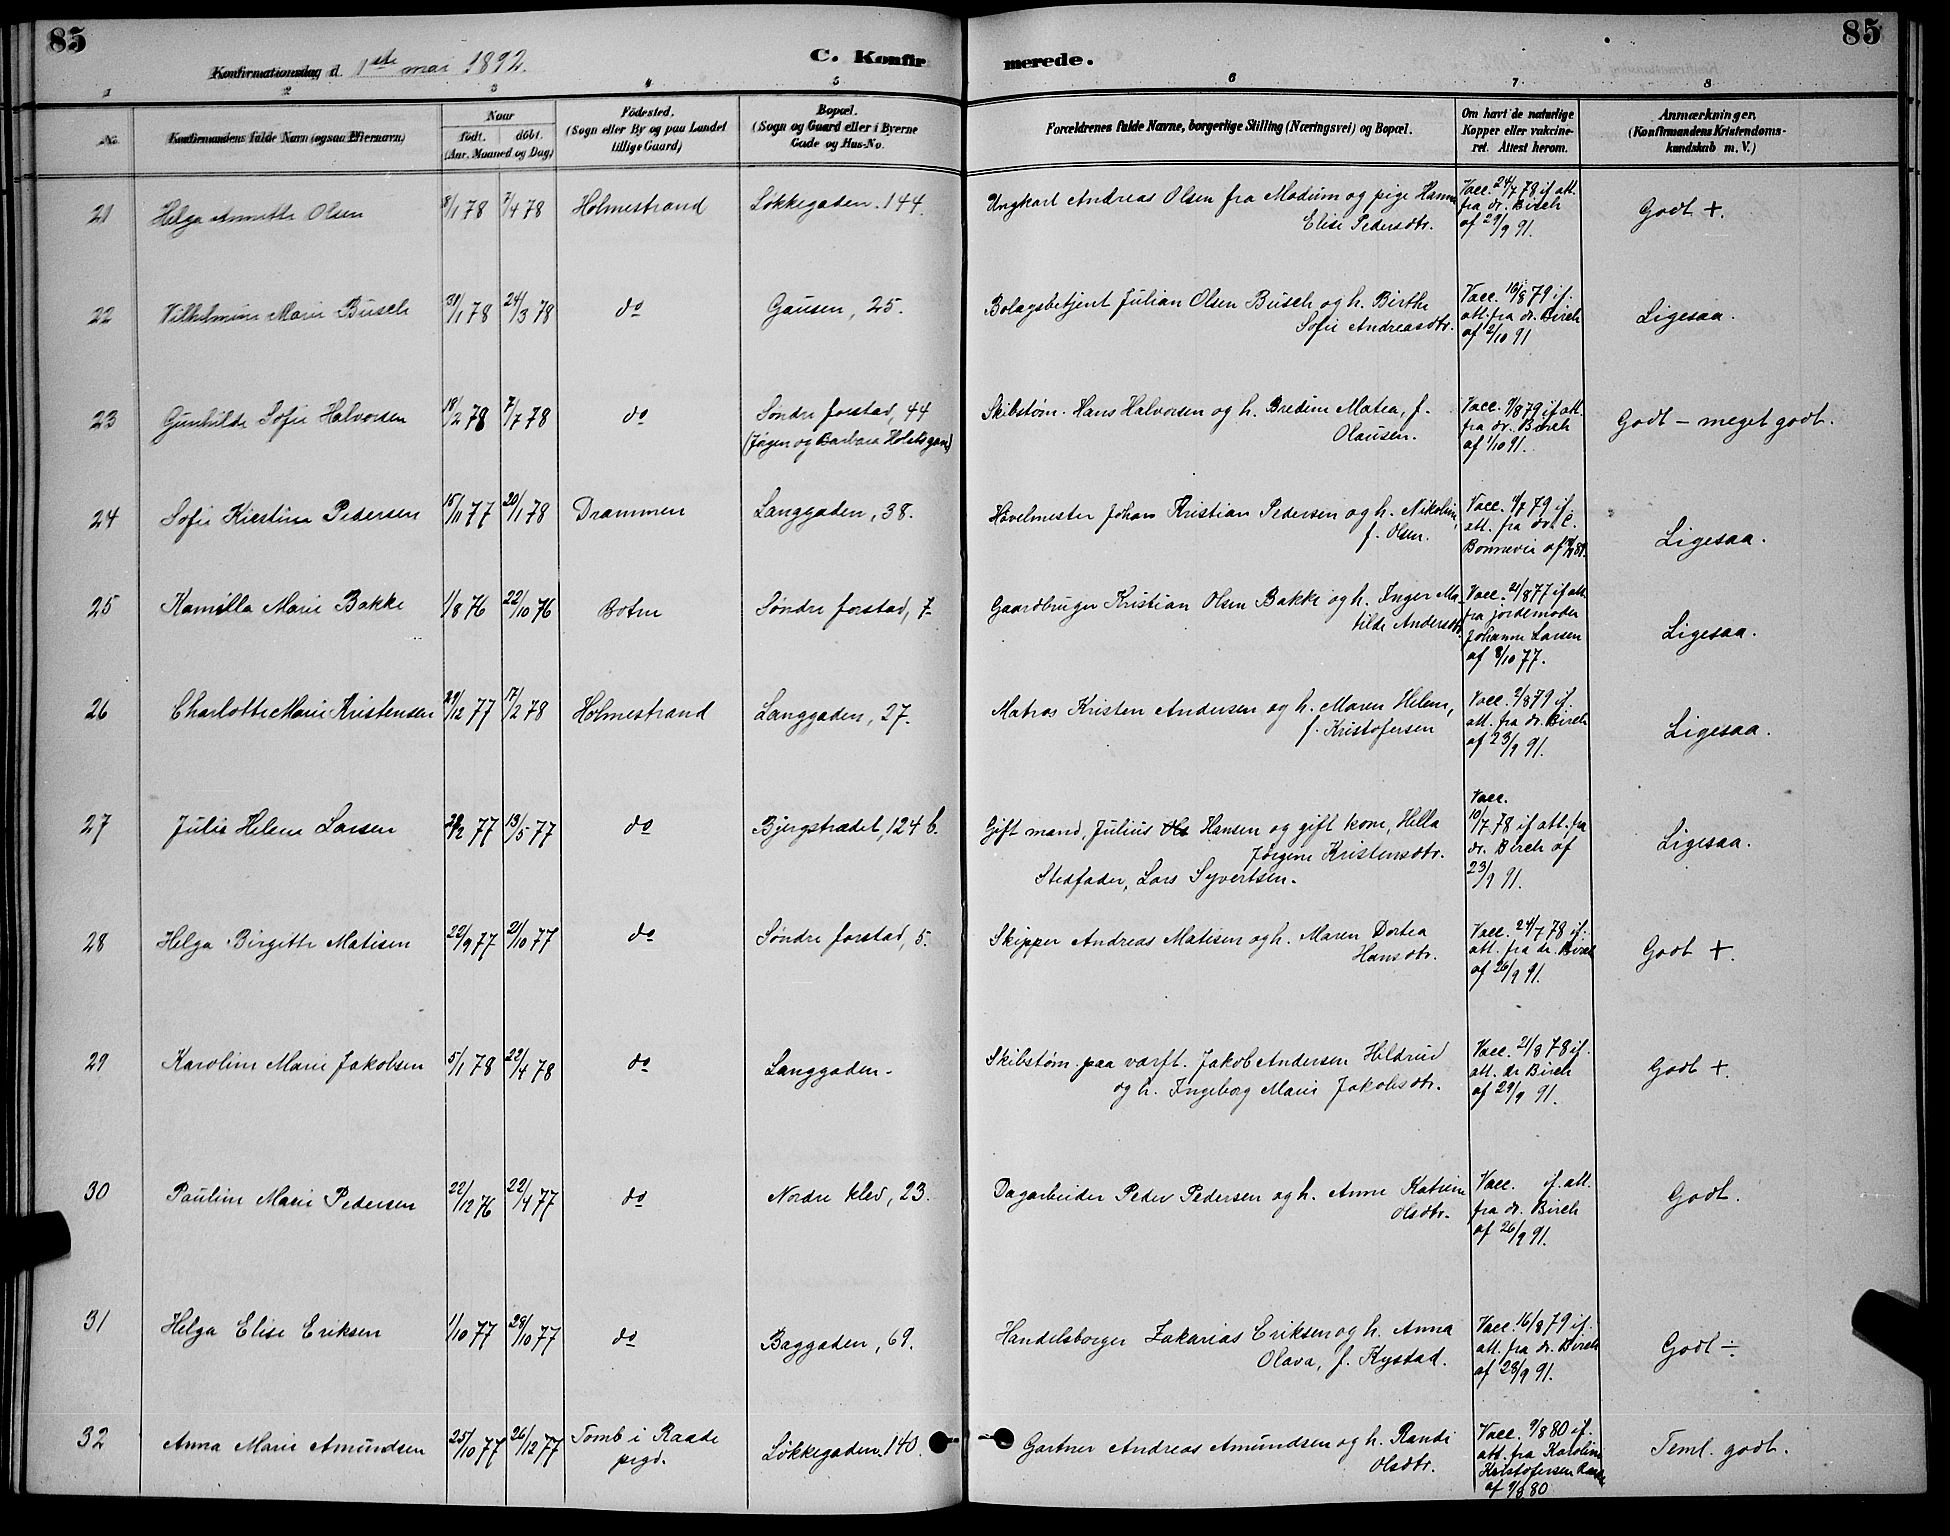 85
85
Konfirmationsdag d. 1ste mai 1892.
C. Konfirmerede.
1 2 3 4 5 6 7 8
No.
Konfirmandens fulde Navn (ogsaa Efternavn)
Naar
födt. döbt.
(Aar, Maaned og Dag)
Födested.
(Sogn eller By og paa Landet
tillige Gaard)
Bopæl.
(Sogn og Gaard eller i Byerne
Gade og Hus-No.
Forældrenes fulde Navne, borgerlige Stilling (Næringsvei) og Bopæl.
Om havt de naturlige
Kopper eller vakcine-
ret. Attest herom.
Anmærkninger.
(Konfirmandens Kristendoms-
kundskab m. V.)
21 Helga Annette Olsen 8/1 78 7/4 78 Holmestrand Løkkegaden. 144. Ungkarl Andreas Olsen fra Modum og pige Hanna
Elise Pedersdtr.
Vacc. 24/7 78 if. att.
fra dr. Birch
af 29/9 91.
Godt +.
22 Vilhelmine Marie Busch 31/1 78 24/3 78 do Gausen, 25. Bolagsbetjent Julian Olsen Busch og h. Birthe
Sofie Andreasdtr.
Vacc. 16/8 79 if.
att. fra dr. Birch
af 2/10 91
Ligesaa.
23 Gunhilde Sofie Halvorsen 18/2 78 7/7 78 do Søndre forstad, 44
(Jøgen og Barbara Holstsgave)
Skibstøm. Hans Halvorsen og h. Bredine Matea, f.
Olausen.
Vacc. 9/8 79 if att.
fra dr. Birch
af 1/10 91.
Godt - meget godt.
24 Sofie Kirstine Pedersen 15/11 77 20/1 78 Drammen Langgaden, 38. Høvelmester Johan Kristian Pedersen og h. Nikoline,
f. Olsen.
Vacc. 4/7 79 if.
att. fra dr. C.
Bonnevie
Ligesaa.
25 Kamilla Marie Bakke 1/8 76 22/10 76 Botne Søndre forstad, 7. Gaardbruger Kristian Olsen Bakke og h. Inger Ma-
tilde Andersdtr.
Vacc. 21/8 77 if att.
fra jordemoder
Johanne Larsen
af 8/10 77.
Ligesaa.
26 Charlotte Marie Kristensen 29/12 77 17/2 78 Holmestrand Langgaden, 27. Matros Kristen Andersen og h. Maren Helene,
f. Kristofersen
Vacc. 9/8 79 if.
att. fra dr. Birch
af 23/9 91.
Ligesaa.
27 Julie Helene Larsen 28/2 77 13/5 77 do Bjergstrædet, 124 b. Gift mand, Julius Ols Hansen og gift kone, Hella
Jørgine Kristensdtr.
Stedfader, Lars Syvertsen.
Vacc.
10/7 78 if att. fra
dr. Birch af
23/9 91.
Ligesaa.
28 Helga Birgitte Matisen 22/9 77 21/10 77 do Søndre forstad, 5. Skipper Andreas Matisen og h. Maren Dortea
Hansdtr.
Vacc. 24/7 78 if.
att. fra dr. Birch
af 26/9 91.
Godt +
29 Karoline Marie Jakobsen 5/1 78 22/4 78 do Langgaden. Skibstøm. paa værft. Jakob Andersen Hildrud
og h. Ingeborg Marie Jakobsdtr.
Vacc. 21/8 78 if.
att. dr Birch
af 29/9 91.
Godt +.
30 Pauline Marie Pedersen 22/12 76 22/4 77 do Nordre klev, 23. Dagarbeider Peder Pedersen og h. Anne Katrine
Olsdtr.
Vacc. if. att.
fra dr. Birch
af 26/9 91.
Godt.
31 Helga Elise Eriksen 1/10 77 28/10 77 do Baggaden, 69. Handelsborger Zakarias Eriksen og h. Anna
Olava, f. Kystad.
Vacc. 16/8 79 if.
att. fra dr. Birch
af 28/9 91.
Godt ÷
32 Anna Marie Amundsen 25/10 77 26/12 77 Tomb i Raade
pgd.
Løkkegaden. 140. Gartner Andreas Amundsen og h. Randi
Olsdtr.
Vacc. 9/8 80 if.
att. fra Karoline
Kristofersen
af 9/8 80
Teml. godt.